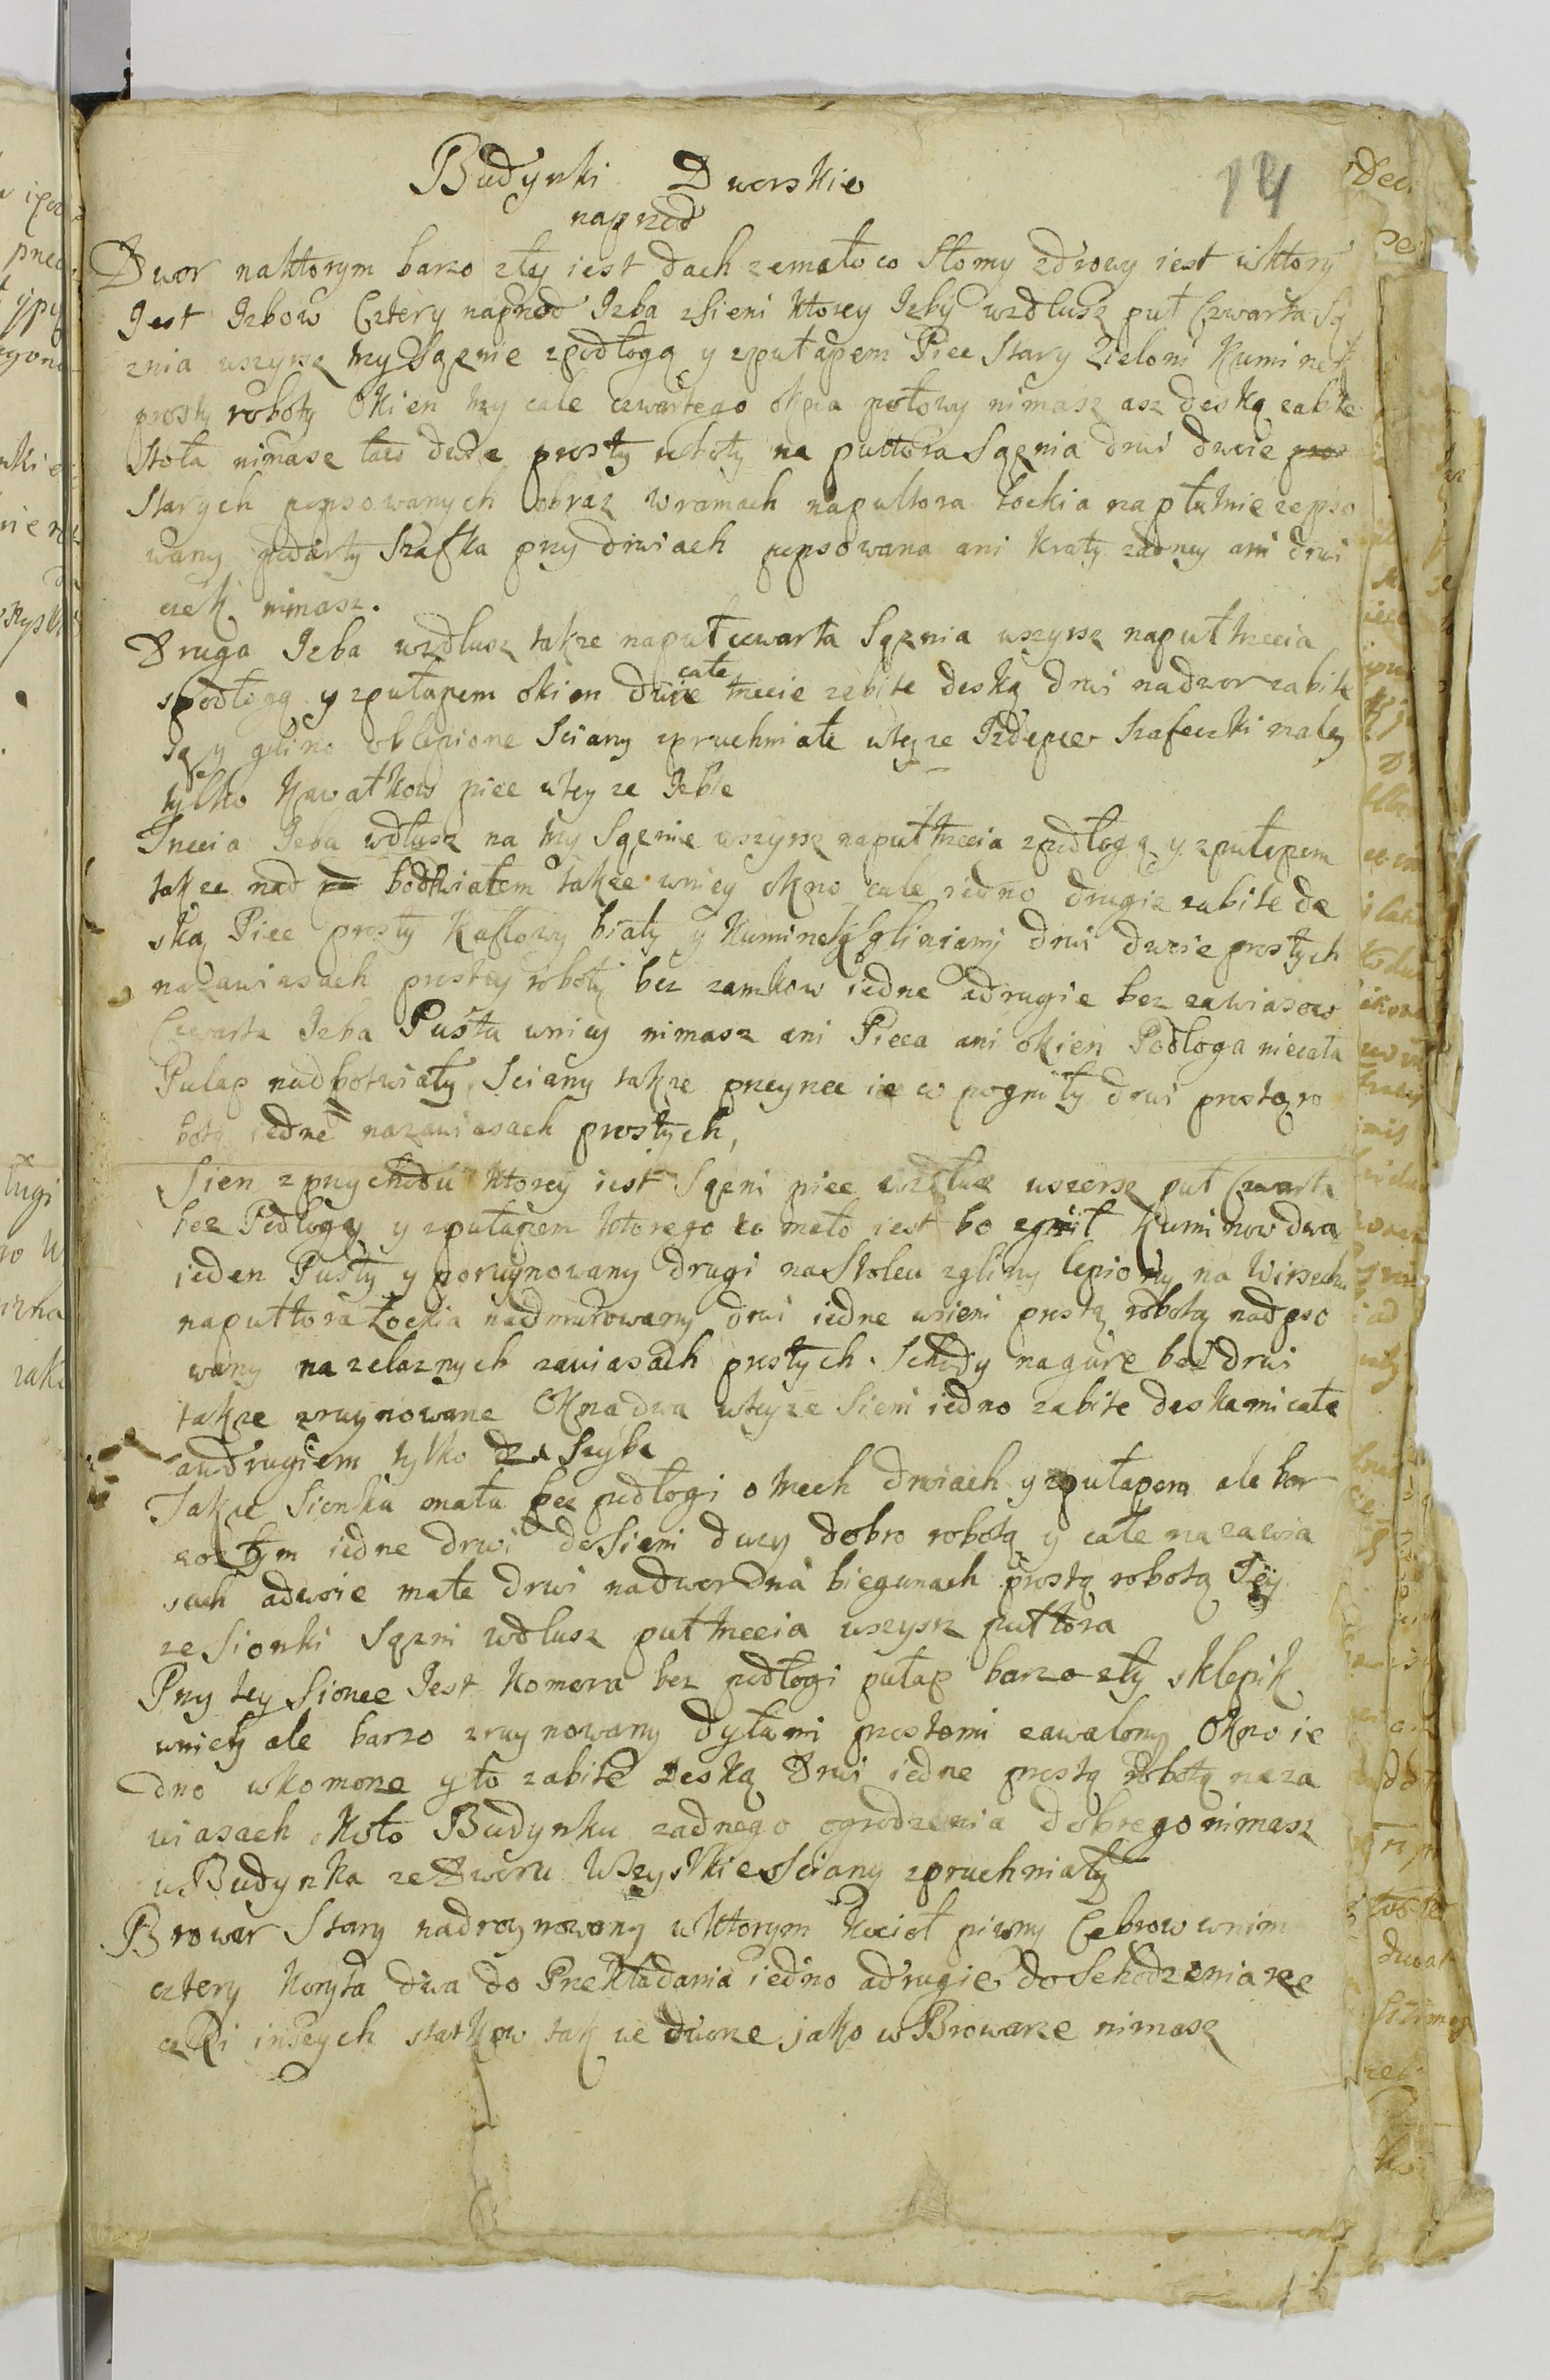 14
Budynki Dworskie
naprzod
Dwor naktorym barzo zły iest dach zemało co słomy zdrowy iest wktory
Jest Izbow Cztery naprzod Izba zsieni ktorey Izby wzdłusz puł Czwarta Są
znia wszyrsz trzy Sąznie zpodłogą y zpułapem Piec Stary Zieloni Kuminek
prosty roboty Okien trzy całe czwartego okna połowy nimasz asz deską zabite
Stoła nimasz ław dwie prosty roboty na pułtora Sąznia drwi dwoie
Starych popsowanych obraz wramach napułtora łockia napłutnie zepso
wany podarty Szafka przy drwiach popsowana ani kraty zadney ani drwi
czek nimasz.
Druga Izba wzdłusz takze napuł czwarta Sąznia wszyrsz napuł trzecia
spodłogą y zpułapem okien dwie całe trzecie zabite deską drwi nadwor zabite
są y gliną oblepione Sciany zpruchniałe wteyze Izdepce Szafeczki małey
tylko Kawałkow piec wteyze Izbie
Trzecia Izba wdłusz na trzy Sąznie wszyrsz napuł trzecia zpodłogą y zpułapem
takze nad bodtwiałem takze wniey okno całe iedno drugie zabite de
ską Piec prosty Kaflowy biały y Kuminek gliniami drwi dwoie prostych
nazawiasach prostey roboty bez zamkow iedne adrugie bez zawiasow
Czwarta Izba Pusta wniey nimasz ani Pieca ani okien Podłoga niecała
Pułap nadbotwiały Sciany takze pogniły drwi prostą ro
botą iedne nazawiasach prostych,
Sien zprzychodu ktorey iest Sązni piec wzdłuz wszersz puł Czwarta
bez Podłogy y zpułapem ktorego co mało iest bo zgnił Kuminow dwa
ieden Pusty y porujnowany drugi nastolcu zgliny lepiony na Wirzchu
napułtora Łockia nadmurowany drwi iedne wsieni prostą robotą nadpso
wany na zelaznych zawiasach prostych Schody nagure bes drwi
takze zruynowane Okna dwa wteyze Sieni iedno zabite deskami całe
awdrugiem tylko dwie Szybe
Takze Sionka mała bez podłogi o trzech drwiach y zpułapem ale bar
zo złym iedne drwi do Sieni duzy dobro robotą y całe nazawia
sach adwoie małe drwi nadwor na biegunach prostą robotą Tey
ze Sionki Sązni wdłusz puł trzecia wszyrsz pułtora
Przy tey Sionce Jest Komora bez podłogi pułap barzo zły sklepik
wniey ale barzo zruynowany dylami prostemi zawalony Okno ie
dno wkomorze y to zabite Deską Drwi iedne prostą robotą naza
wiasach Koło Budynku zadnego ogrodzenia dobrego nimasz
uBudynka zeDworu Wszystkie Sciany zpruchniały
Browar Stary nadroynowany wktorym Kocioł piwny Cebrow wnim
cztery Koryta dwa do Przekładania iedno adrugie do Schodzenia rze
czki inszych statkow tak we dworze jako wBrowarze nimasz